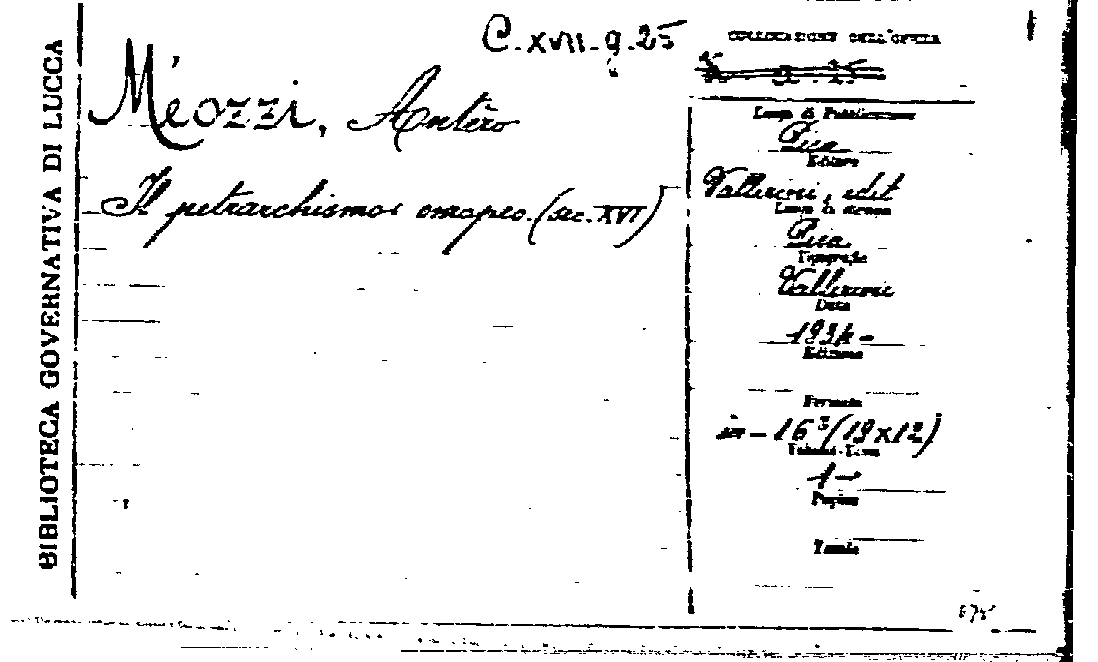 BIBLIOTECA GOVERNATIVA DI LUCCA
C.XVII.9.25
Méozzi, Antèro
Il petrarchismo europeo. (sec. XVI)
COLLOCAZIONE DELL'OPERA
Luogo di Pubblicazione
Pisa
Editore
Vallerini, edit
Luogo di stampa
Pisa
Tipografia
Vallerini
Data
1934-
Edizione
Formato
in-16° (19x12)
Volumi-Tomi
1-
Pagine
Tavole